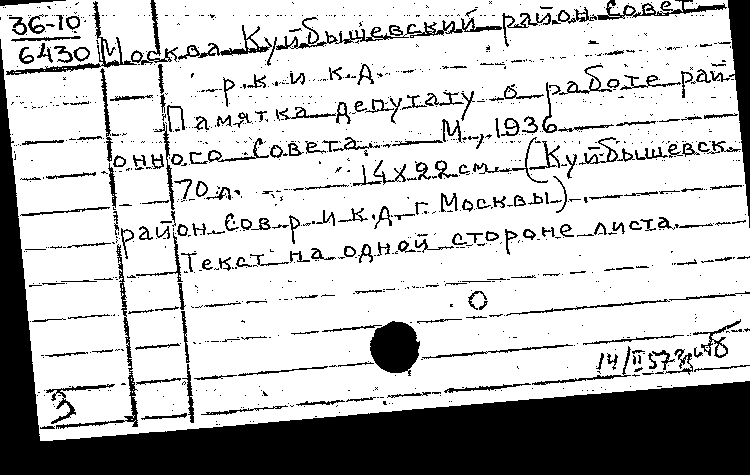 36-10
6430
Москва Куйбышевский район Совет
р.к. и к.д.
Памятка депутату о работе рай-
онного Совета. М., 1936
70 л. 14х22 см. (Куйбышевск.
район. Сов. р. и к.д. г. Москвы).
Текст на одной стороне листа.
14/II 57
3